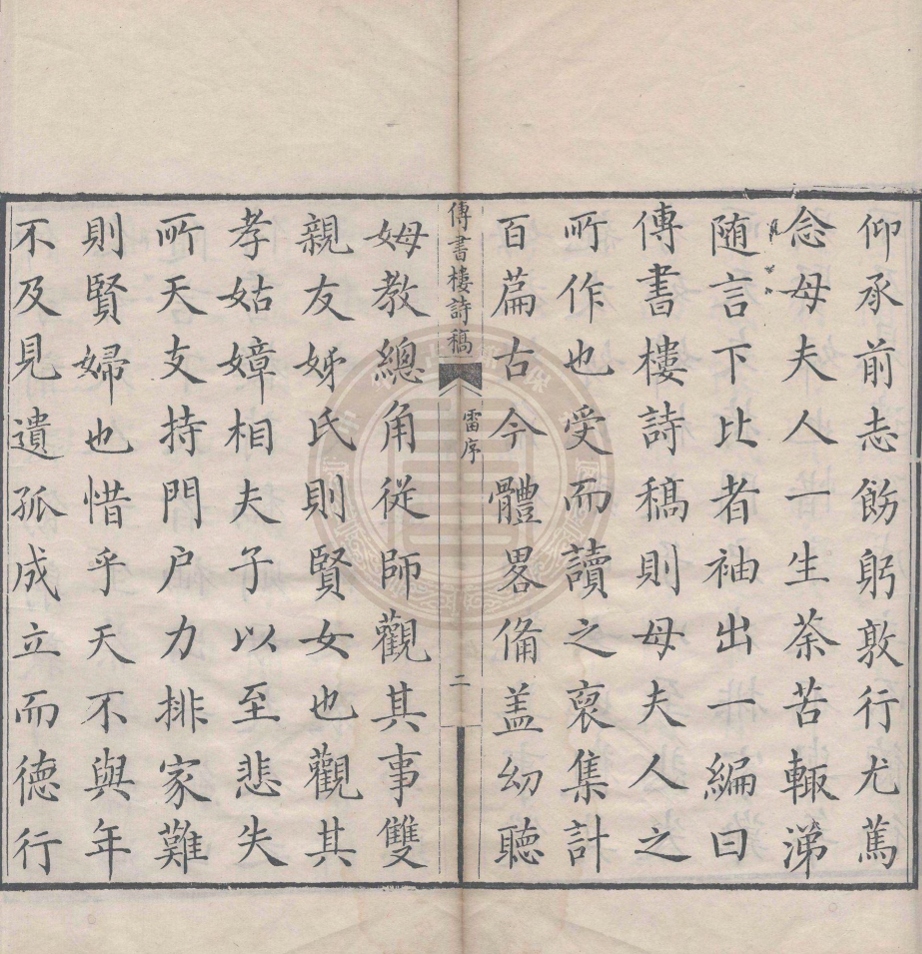 仰承前志飭躬敦行尤篤
念母夫人一生荼苦輙涕
随言下比者袖出一編曰
傳書樓詩稿則母夫人之
所作也受而讀之裒集計
百篇古今體畧俻盖幼聽
傳書樓詩稿
雷序
二
姆教總角從師觀其事雙
親友姊氏則賢女也觀其
孝姑嫜相夫子以至悲失
所天支持門户力排家難
則賢婦也惜乎天不與年
不及見遺孤成立而德行